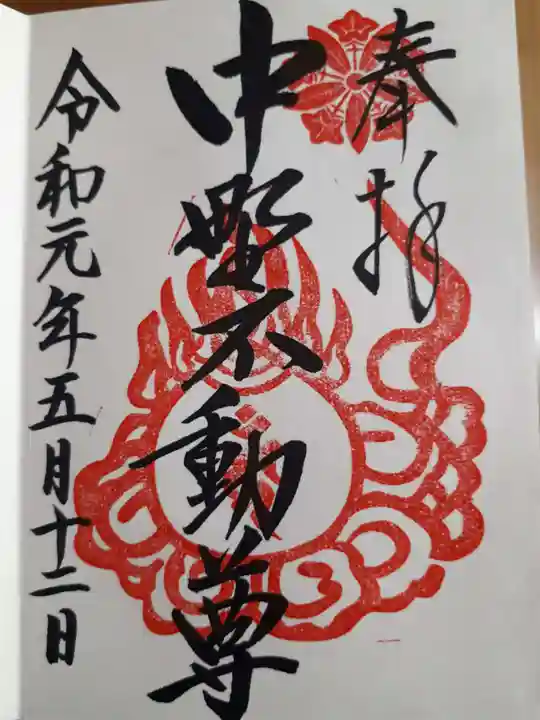 奉拝
中野不動尊
令和元年五月十二日